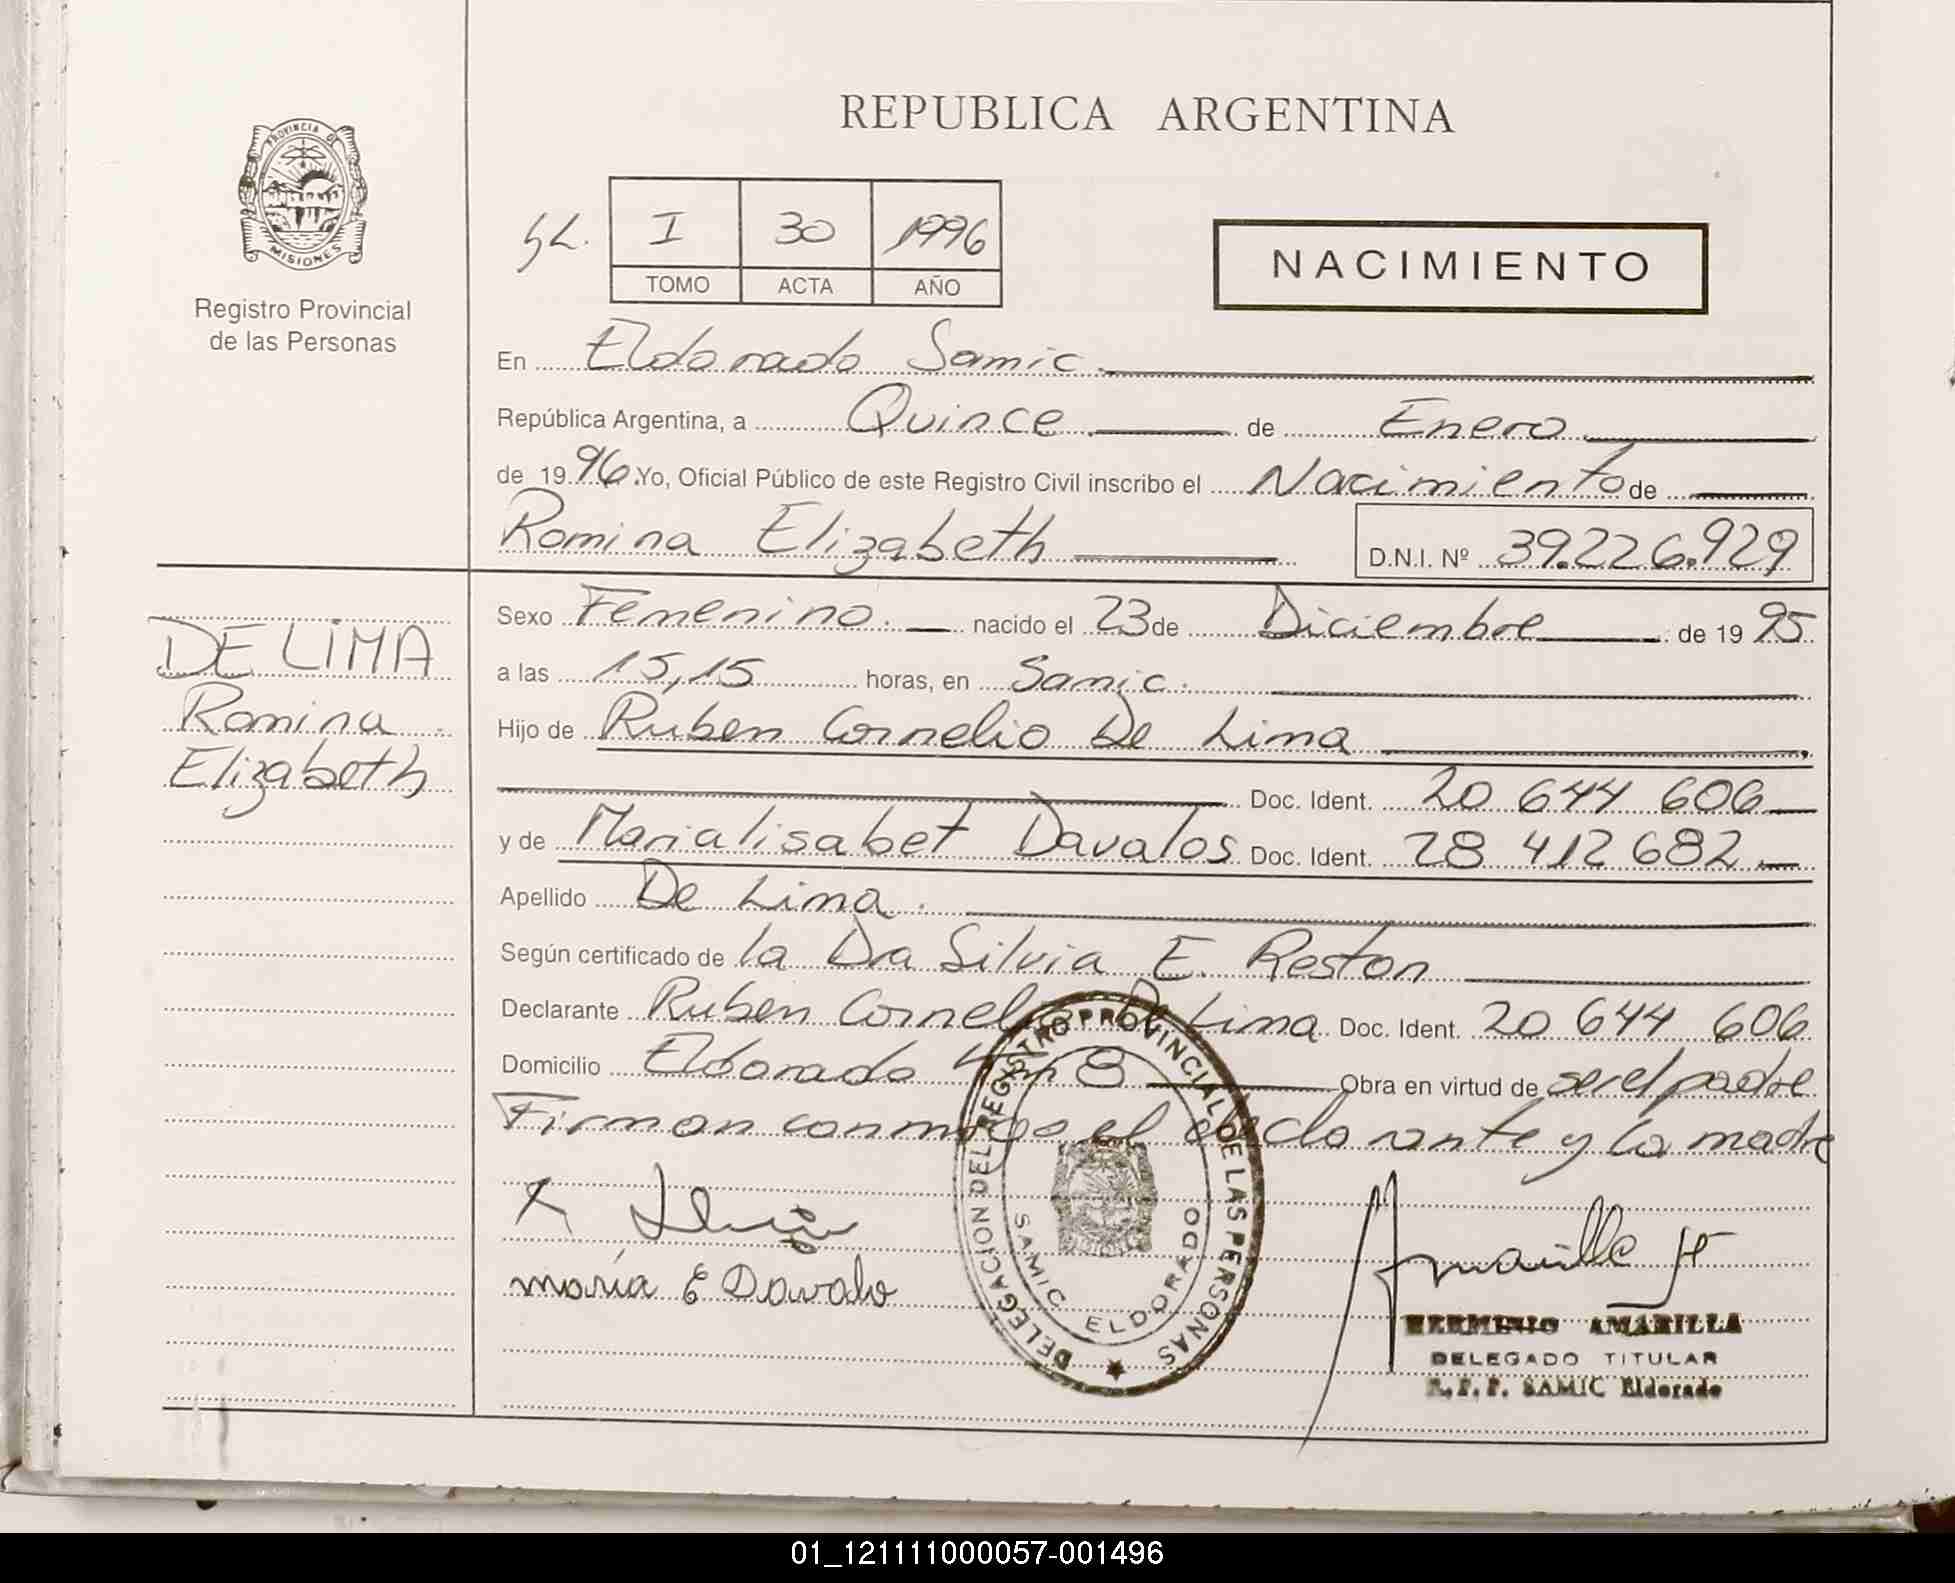 REPUBLICA ARGENTINA
PROVINCIA DE
MISIONES
Registro Provincial
de las Personas
I 30 1996
TOMO ACTA AÑO
NACIMIENTO
En Eldorado Samic
República Argentina, a Quince de Enero
de 1996 Yo, Oficial Público de este Registro Civil inscribo el Nacimiento de
Romina Elizabeth D.N.I. Nº 39.226.929
DE LIMA
Romina
Elizabeth
Sexo Femenino. nacido el 23 de Diciembre de 1995
a las 15,15 horas, en Samic.
Hijo de Ruben Cornelio De Lima
Doc. Ident. 20 644 606
y de Marialisabet Davalos Doc. Ident. 28 412 682
Apellido De Lima.
Según certificado de la Dra Silvia E. Reston
Declarante Ruben Cornelio De Lima Doc. Ident. 20 644 606
Domicilio Eldorado Km 8 Obra en virtud de ser el padre
Firman conmigo el declarante y la madre
DELEGACION DEL REGISTRO PROVINCIAL DE LAS PERSONAS
SAMIC ELDORADO
maría E Davalo
Amarilla
HERMINIO AMARILLA
DELEGADO TITULAR
R.P.P. SAMIC Eldorado
01_121111000057-001496